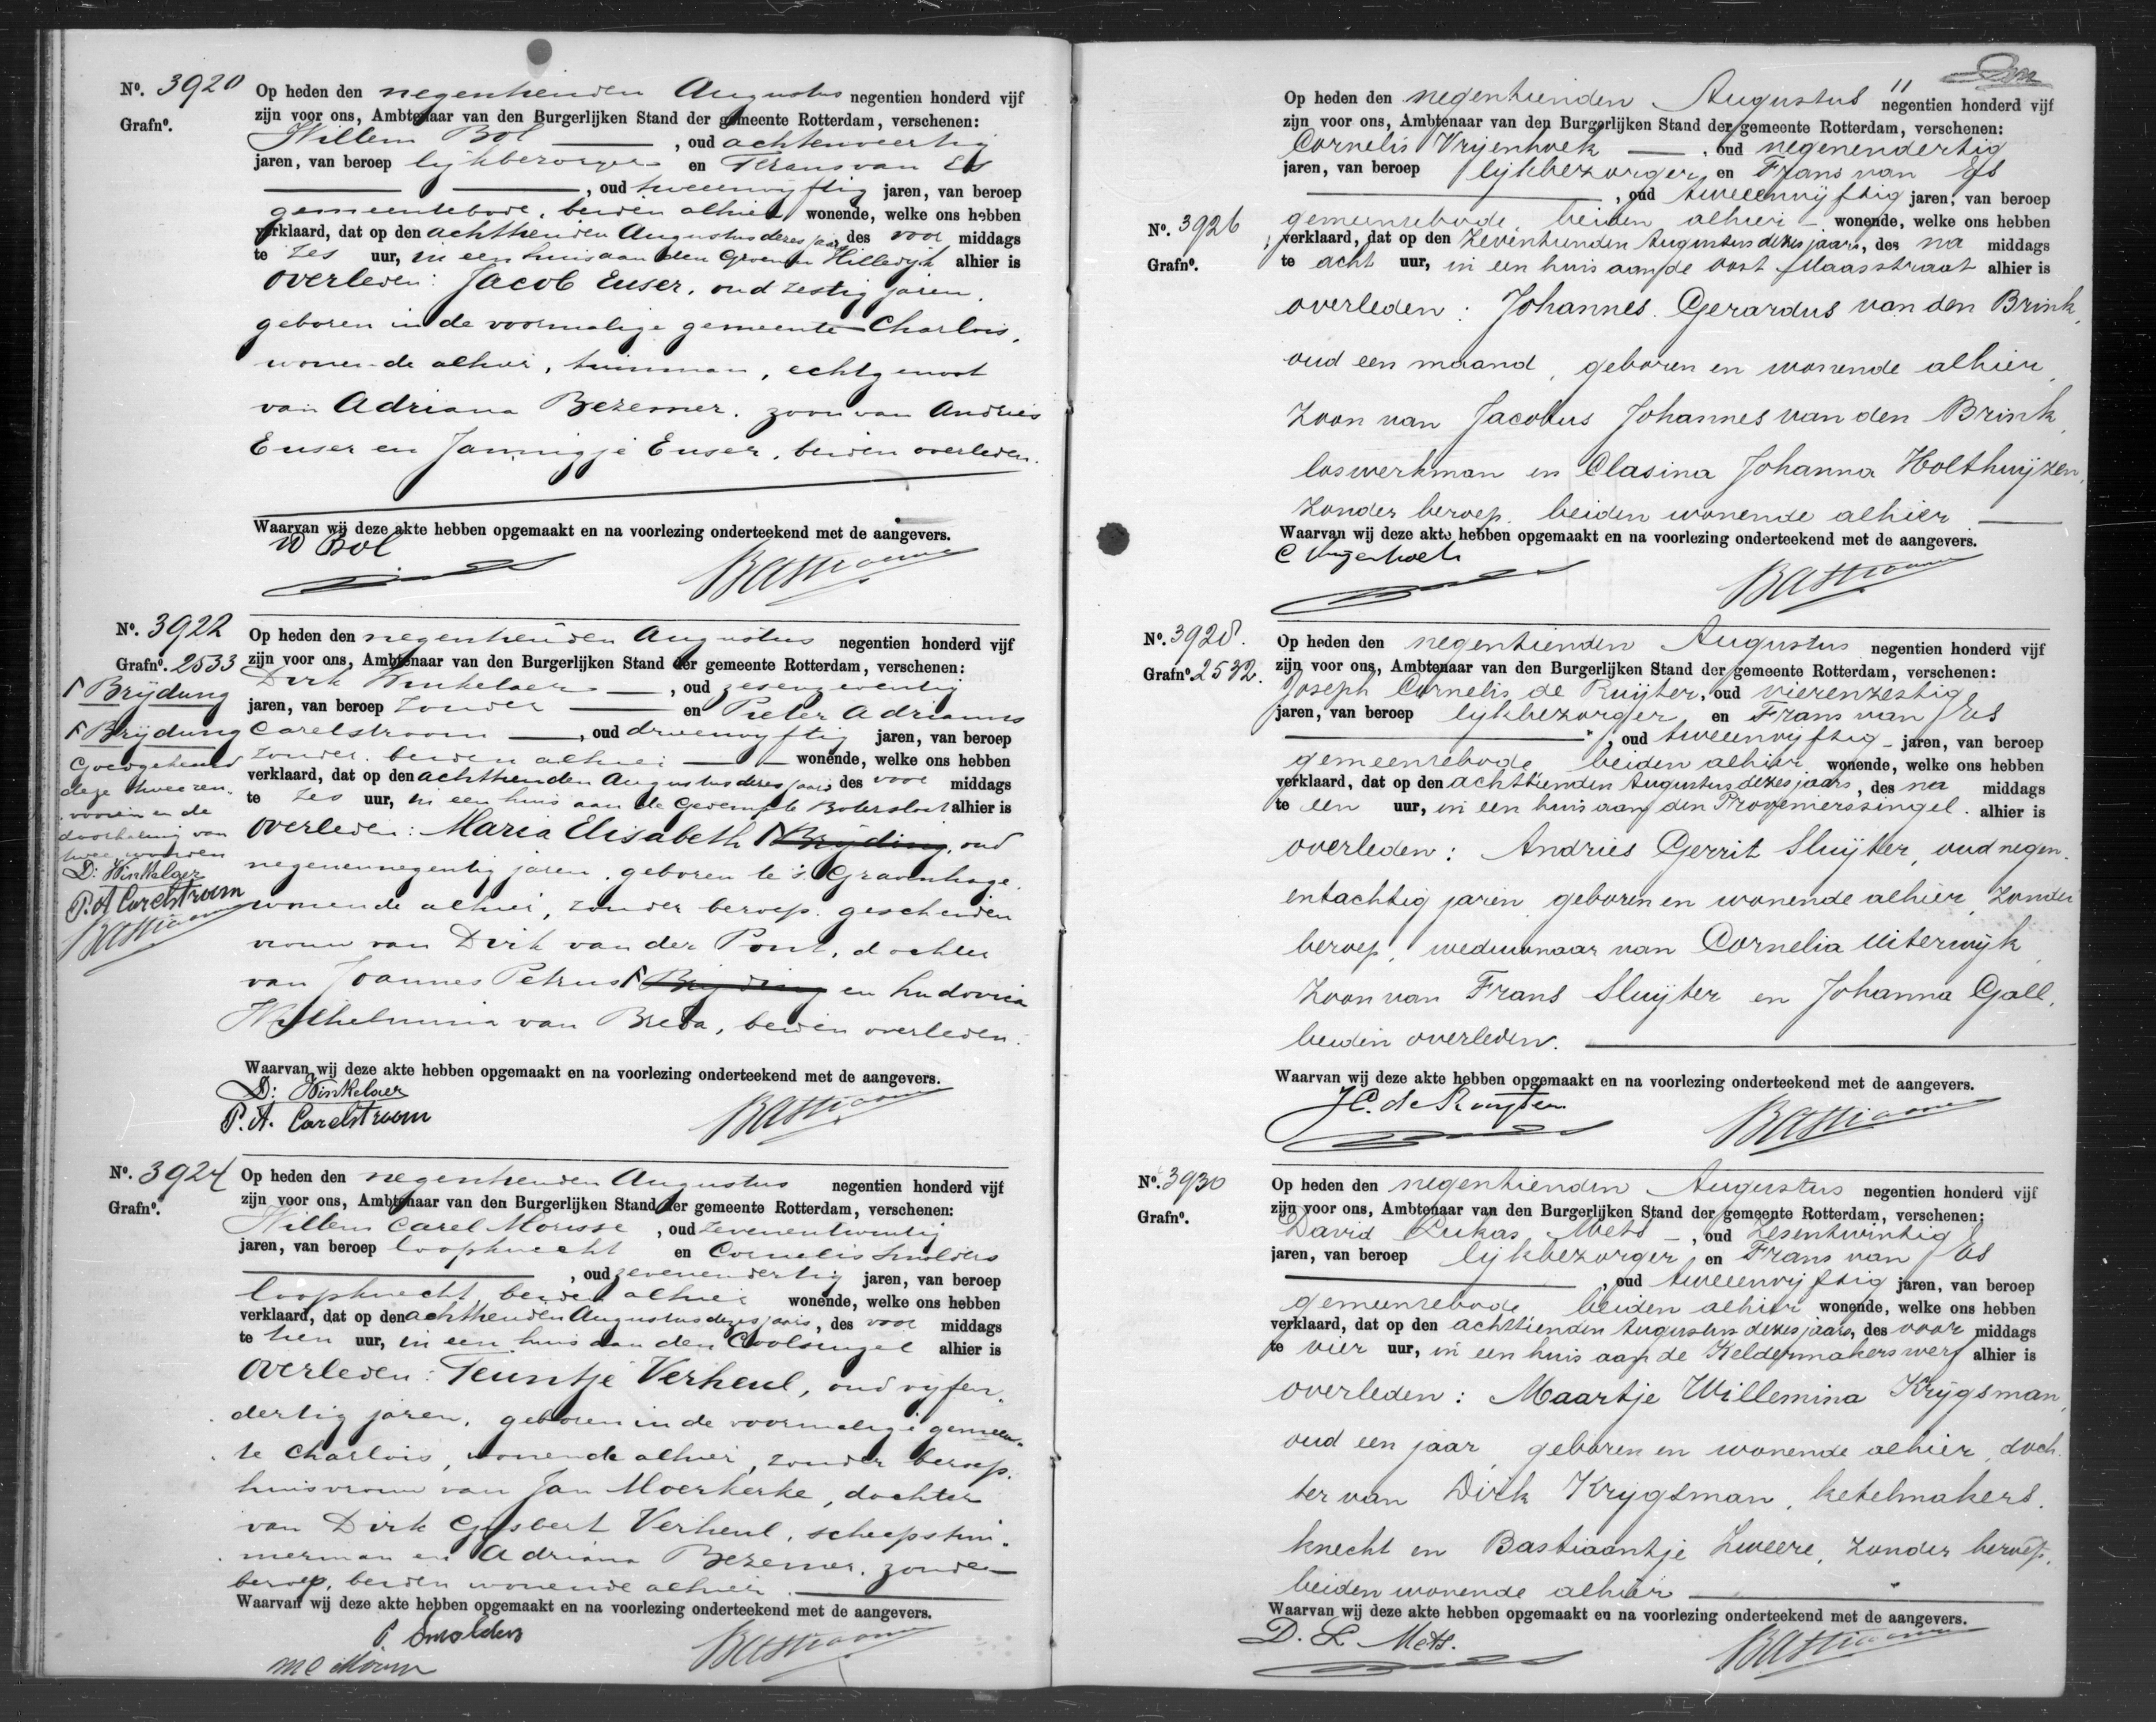 Nº. 3920
Grafnº.
Op heden den negentienden Augustus negentien honderd vijf
zijn voor ons, Ambtenaar van den Burgerlijken Stand der gemeente Rotterdam, verschenen:
Willem Bol , oud achtenveertig
jaren, van beroep lijkbezorger en Frans van Es
, oud tweeenvijftig jaren, van beroep
gemeentebode, beiden alhier wonende, welke ons hebben
verklaard, dat op den achttienden Augustus dezes jaars des voor middags
te zes uur, in een huis aan den Groenen Hilledijk alhier is
overleden: Jacob Euser, oud zestig jaren,
geboren in de voormalige gemeente Charlois,
wonende alhier, tuinman, echtgenoot
van Adriana Bezemer, zoon van Andries
Euser en Jannigje Euser, beiden overleden.
Waarvan wij deze akte hebben opgemaakt en na voorlezing onderteekend met de aangevers.
W Bol
Nº. 3922
Grafnº. 2533
Op heden den negentienden Augustus negentien honderd vijf
zijn voor ons, Ambtenaar van den Burgerlijken Stand der gemeente Rotterdam, verschenen:
Dirk Winkelaer , oud zesenzeventig
jaren, van beroep zonder en Pieter Adrianus
Carelstroom , oud drieenvijftig jaren, van beroep
zonder, beiden alhier wonende, welke ons hebben
verklaard, dat op den achttienden Augustus dezes jaars des voor middags
te zes uur, in een huis aan de Gedempte Botersloot alhier is
overleden: Maria Elisabeth Bryding, oud
negenennegentig jaren, geboren te 's Gravenhage,
wonende alhier, zonder beroep, gescheiden
vrouw van Dirk van der Pont, dochter
van Joannes Petrus Bryding en Ludovica
Wilhelmina van Breda, beiden overleden.
Waarvan wij deze akte hebben opgemaakt en na voorlezing onderteekend met de aangevers.
D: Winkelaer
P. A. Carelstroom
Brijdung
Brijdung
Goedgekeurd
deze twee ren-
vooien en de
doorhaling van
twee woorden
D: Winkelaer
P. A Carelstroom
Nº. 3924
Grafnº.
Op heden den negentienden Augustus negentien honderd vijf
zijn voor ons, Ambtenaar van den Burgerlijken Stand der gemeente Rotterdam, verschenen:
Willem Carel Morisse , oud zevenentwintig
jaren, van beroep loopknecht en Cornelis Smolders
, oud zevenendertig jaren, van beroep
loopknecht, beiden alhier wonende, welke ons hebben
verklaard, dat op den achttienden Augustus dezes jaars, des voor middags
te tien uur, in een huis aan den Coolsingel alhier is
overleden: Teuntje Verheul, oud vijfen-
dertig jaren, geboren in de voormalige gemeen-
te Charlois, wonende alhier, zonder beroep,
huisvrouw van Jan Moerkerke, dochter
van Dirk Gijsbert Verheul, scheepstim-
merman en Adriana Bezemer, zonder
beroep, beiden wonende alhier.
Waarvan wij deze akte hebben opgemaakt en na voorlezing onderteekend met de aangevers.
Smolders
Nº. 3926
Grafnº.
Op heden den negentienden Augustus negentien honderd vijf
zijn voor ons, Ambtenaar van den Burgerlijken Stand der gemeente Rotterdam, verschenen:
Cornelis Vrijenhoek , oud negenendertig
jaren, van beroep lijkbezorger, en Frans van Es
, oud tweeenvijftig jaren, van beroep
gemeentebode, beiden alhier wonende, welke ons hebben
verklaard, dat op den zeventienden Augustus dezes jaars, des na middags
te acht uur, in een huis aan de Oost Maasstraat alhier is
overleden: Johannes Gerardus van den Brink,
oud een maand, geboren en wonende alhier,
zoon van Jacobus Johannes van den Brink,
loswerkman en Clasina Johanna Holthuijzen,
zonder beroep, beiden wonende alhier
Waarvan wij deze akte hebben opgemaakt en na voorlezing onderteekend met de aangevers.
C Vrijenhoek
Nº. 3928.
Grafnº 2532.
Op heden den negentienden Augustus negentien honderd vijf
zijn voor ons, Ambtenaar van den Burgerlijken Stand der gemeente Rotterdam, verschenen:
Joseph Cornelis de Ruijter, oud vierenzestig
jaren, van beroep lijkbezorger en Frans van Es
, oud tweeenvijftig jaren, van beroep
gemeentebode beiden alhier wonende, welke ons hebben
verklaard, dat op den achttienden Augustus dezes jaars, des na middags
te een uur, in een huis aan den Provenierssingel alhier is
overleden: Andries Gerrit Sluijter, oud negen-
entachtig jaren geboren en wonende alhier, zonder
beroep, weduwnaar van Cornelia Uiterwijk,
zoon van Frans Sluijter en Johanna Gall,
beiden overleden.
Waarvan wij deze akte hebben opgemaakt en na voorlezing onderteekend met de aangevers.
J C. de Ruijter
Nº. 3930
Grafnº.
Op heden den negentienden Augustus negentien honderd vijf
zijn voor ons, Ambtenaar van den Burgerlijken Stand der gemeente Rotterdam, verschenen:
David Lukas Mets , oud zesentwintig
jaren, van beroep lijkbezorger, en Frans van Es
, oud tweeenvijftig jaren, van beroep
gemeentebode, beiden alhier wonende, welke ons hebben
verklaard, dat op den achttienden Augustus dezes jaars, des voor middags
te vier uur, in een huis aan de Keldermakerswerf alhier is
overleden: Maartje Willemina Krijgsman,
oud een jaar, geboren en wonende alhier, doch-
ter van Dirk Krijgsman, ketelmakers-
knecht en Bastiaantje Zweere, zonder beroep,
beiden wonende alhier
Waarvan wij deze akte hebben opgemaakt en na voorlezing onderteekend met de aangevers.
D. L. Mets.